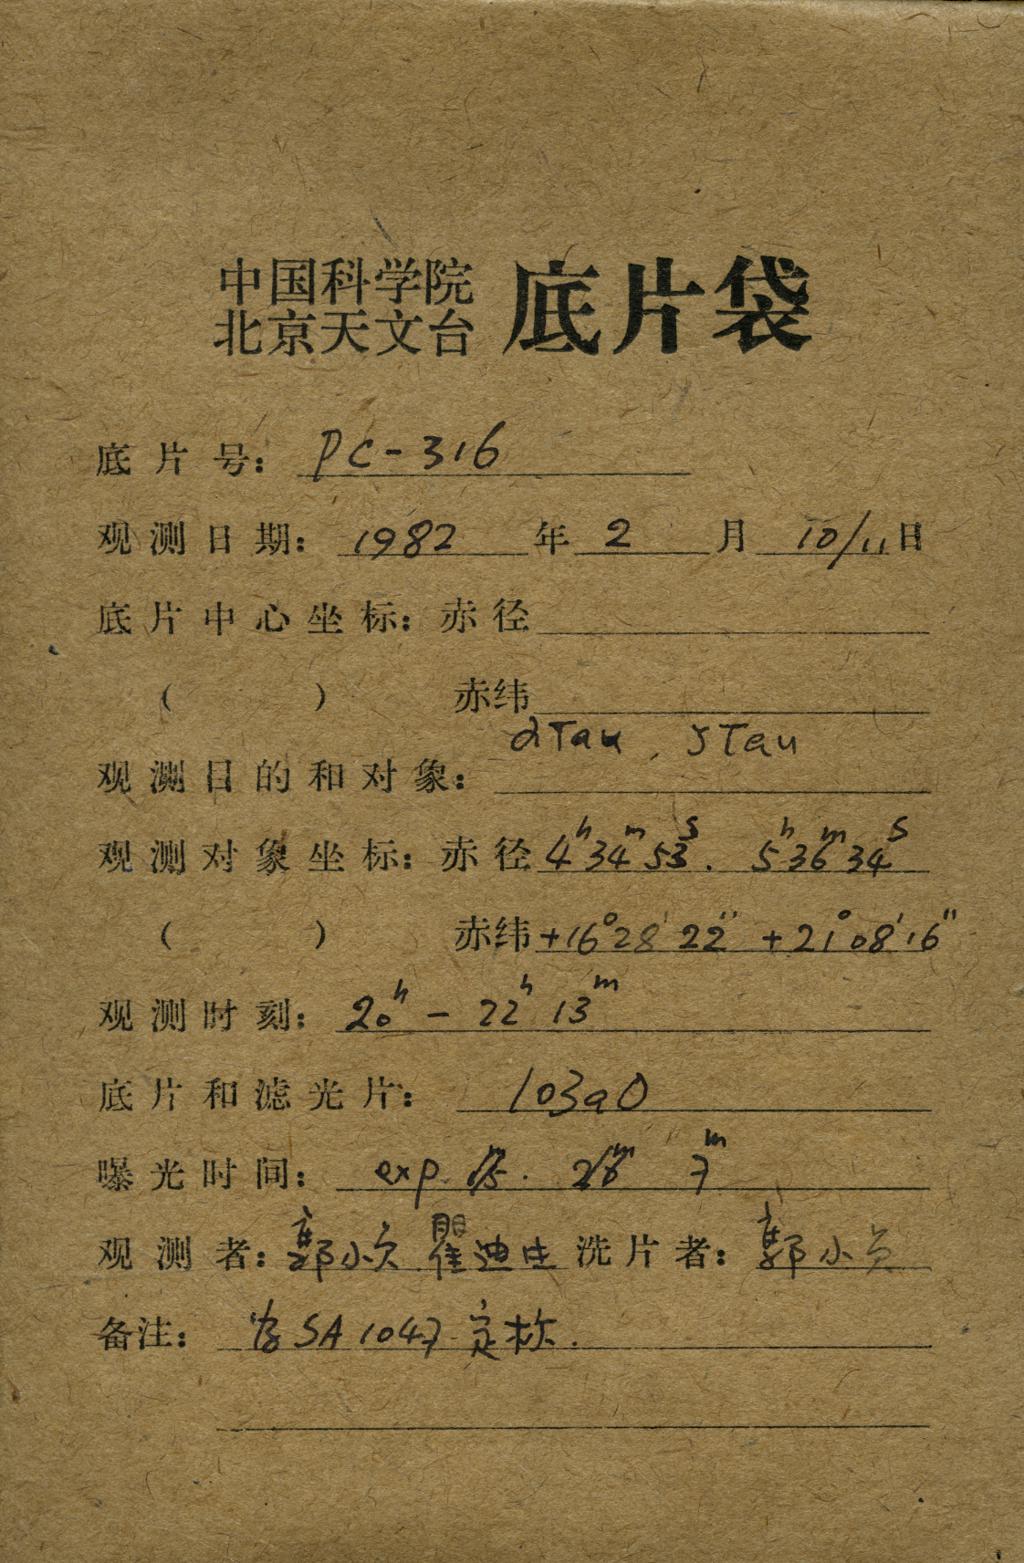 中国科学院
北京天文台 底片袋
底片号: PC-316
观测日期: 1982 年 2 月 10/11 日
底片中心坐标: 赤径
( ) 赤纬
αTau, ζTau
观测目的和对象:
观测对象坐标: 赤径 4h34m53s. 5h36m34s
( ) 赤纬 +16°28′22″ +21°08′16″
观测时刻: 20h - 22h 13m
底片和滤光片: 103aO
曝光时间: exp. 7m
观测者: 郭小 瞿迪生 洗片者: 郭小
备注: SA 1047 定标.